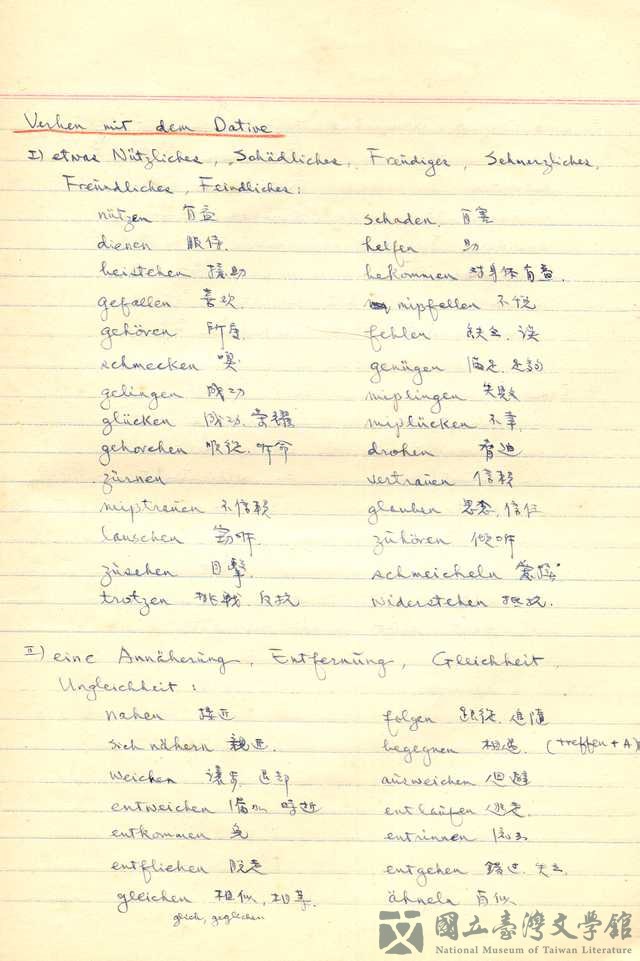 Verben mit dem Dative
I) etwas Nützliches, Schädliches, Freudiges, Schmerzliches,
Freundliches, Feindliches:
nützen 有益 schaden 有害
dienen 服侍 helfen 助
beistehen 援助 bekommen 对身体有益
gefallen 喜欢 mipfellen 不悦
gehören 所属 fehlen 缺乏, 误
schmecken 嗅 genügen 满足, 足夠
gelingen 成功 miplingen 失敗
glücken 成功, 荣耀 miplücken 不幸
gehorchen 順従, 听命 drohen 脅迫
zürnen vertrauen 信賴
miptrauen 不信賴 glauben 思念, 信任
lauschen 窃听 zuhören 倾听
zusehen 目擊 schmeicheln
trotzen 挑戦, 反抗 widerstehen 抵抗
II) eine Annäherung, Entfernung, Gleichheit,
Ungleichheit:
nahen 接近 folgen 跟從, 追随
sich nähern 親近 begegnen 相遇, (treffen + A)
weichen 讓步, 退却 ausweichen 回避
entweichen entlaufen 逃走
entkommen 免 entrinnen
entfliehen 脱走 entgehen 錯过, 失去
gleichen 相似, 相等 ähneln 有似
glich, geglichen
國立臺灣文學館
National Museum of Taiwan Literature